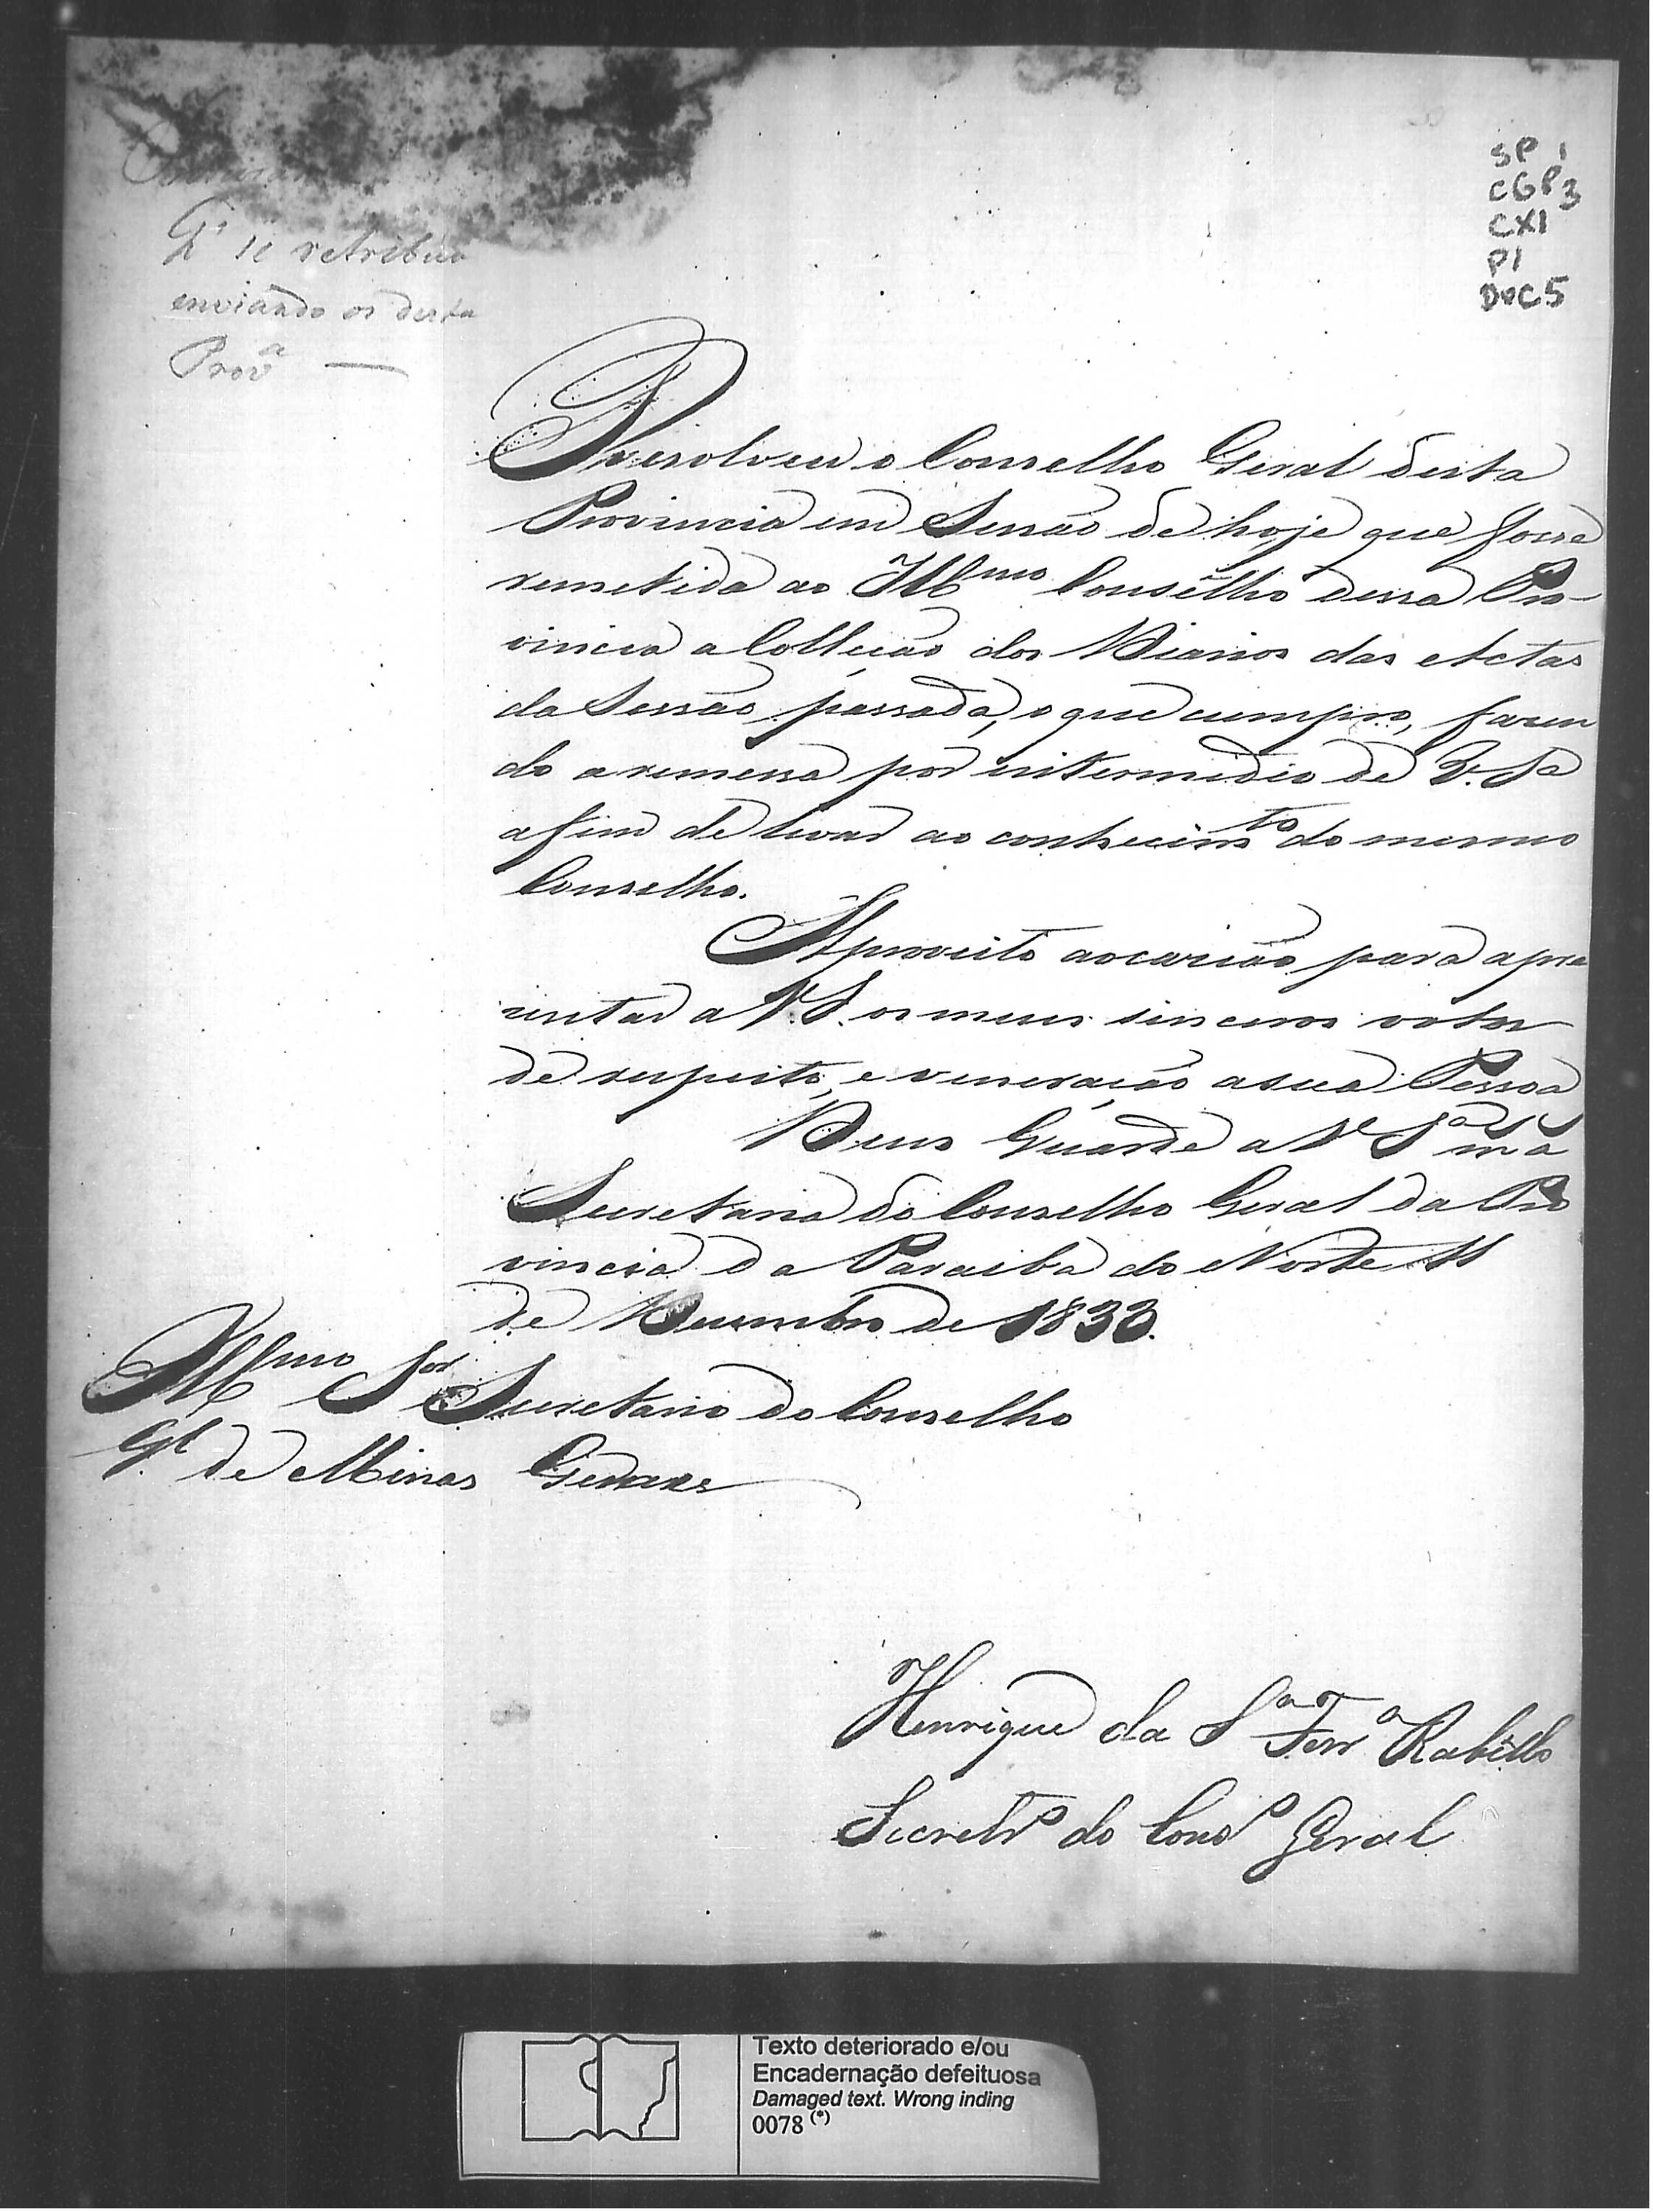 SP 1
CGP3
CX1
P1
DOC5
Qe se retribua
enviando os desta
Prov.a —
Resolveu o Conselho Geral desta
Provincia em Sessão de hoje que fosse
remetida ao Illmo Conselho dessa Pro-
vincia a Collecção dos Diarios das Actas
da Sessão passada, o que cumpro, fazen
do a remessa por intermedio de V. Sa
afim de levar ao conhecimto do mesmo
Conselho.
Aproveito aocazião para apre
zentar a V. S. os meus sinceros votos
de respeito, e veneração a sua Pessoa
Deus Guarde a V Sa
Secretaria do Conselho Geral da Pro
vincia da Paraiba do Norte 11
de Dezembro de 1833.
Illmo Sor Secretario do Conselho
Gl de Minas Geraes
Henrique da Sa Ferra Rabello
Secretro do Conso Geral
Texto deteriorado e/ou
Encadernação defeituosa
Damaged text. Wrong inding
0078 (*)